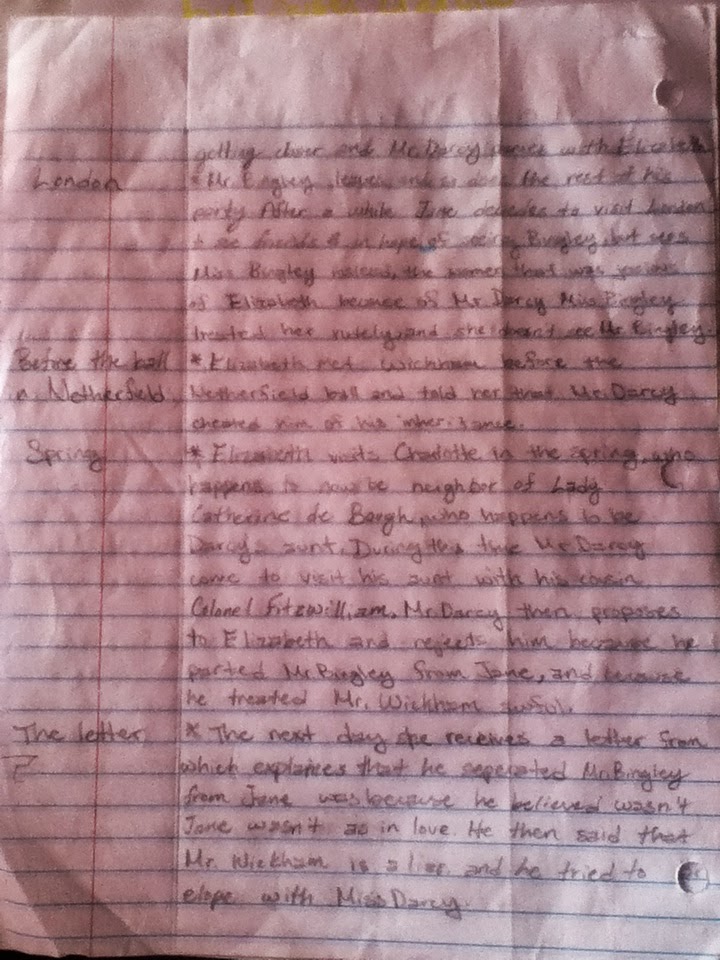 getting closer and Mr. Darcy with Elizabeth
London * Mr. Bingley leaves and so does the rest of his
party After a while Jane decides to visit London
to see friends & in hope of seeing Bingley, but sees
Miss Bingley instead, the women that was jealous
of Elizabeth because of Mr. Darcy Miss Bingley
treated her rudely, and she doesn't see Mr. Bingley.
Before the ball * Elizabeth met Wickham before the
n Netherfield Netherfield ball and told her that Mr. Darcy
cheated him of his inheritance.
Spring * Elizabeth visits Charlotte in the spring, who
happens to now be neighbor of Lady
Catherine de Bourgh, who happens to be
Darcy's aunt. During this time Mr. Darcy
come to visit his aunt with his cousin
Colonel Fitzwilliam. Mr. Darcy then proposes
to Elizabeth and rejects him because he
parted Mr Bingley from Jane, and because
he treated Mr. Wickham awful.
The letter * The next day she receives a letter from
which explaines that he seperated Mr. Bingley
from Jane was because he believed wasn't
Jane wasn't as in love. He then said that
Mr. Wickham is a liar and he tried to
elope with Miss Darcy.